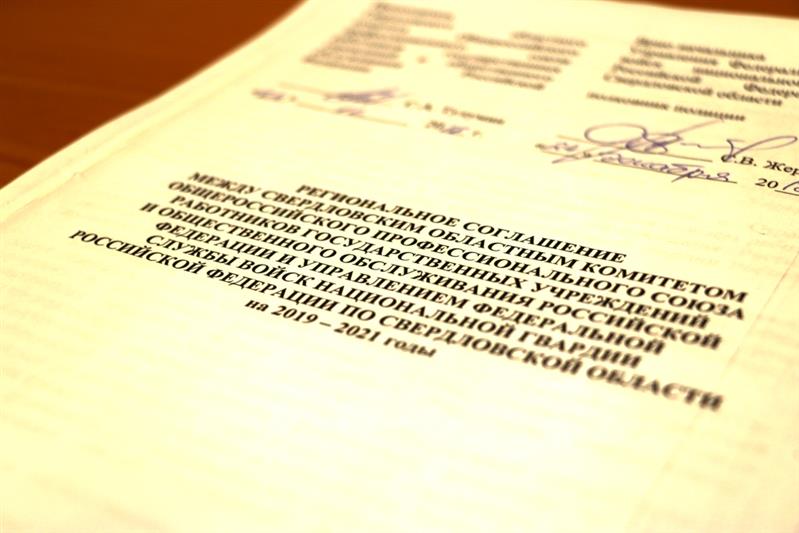 Врио начальника
Управления Федерал
войск национально
Российской Федера
Свердловской области
полковник полиции
С.В. Жер
декабря 201
РЕГИОНАЛЬНОЕ СОГЛАШЕНИЕ
МЕЖДУ СВЕРДЛОВСКИМ ОБЛАСТНЫМ КОМИТЕТОМ
ОБЩЕРОССИЙСКОГО ПРОФЕССИОНАЛЬНОГО СОЮЗА
РАБОТНИКОВ ГОСУДАРСТВЕННЫХ УЧРЕЖДЕНИЙ
И ОБЩЕСТВЕННОГО ОБСЛУЖИВАНИЯ РОССИЙСКОЙ
ФЕДЕРАЦИИ И УПРАВЛЕНИЕМ ФЕДЕРАЛЬНОЙ
СЛУЖБЫ ВОЙСК НАЦИОНАЛЬНОЙ ГВАРДИИ
РОССИЙСКОЙ ФЕДЕРАЦИИ ПО СВЕРДЛОВСКОЙ ОБЛАСТИ
на 2019 – 2021 годы